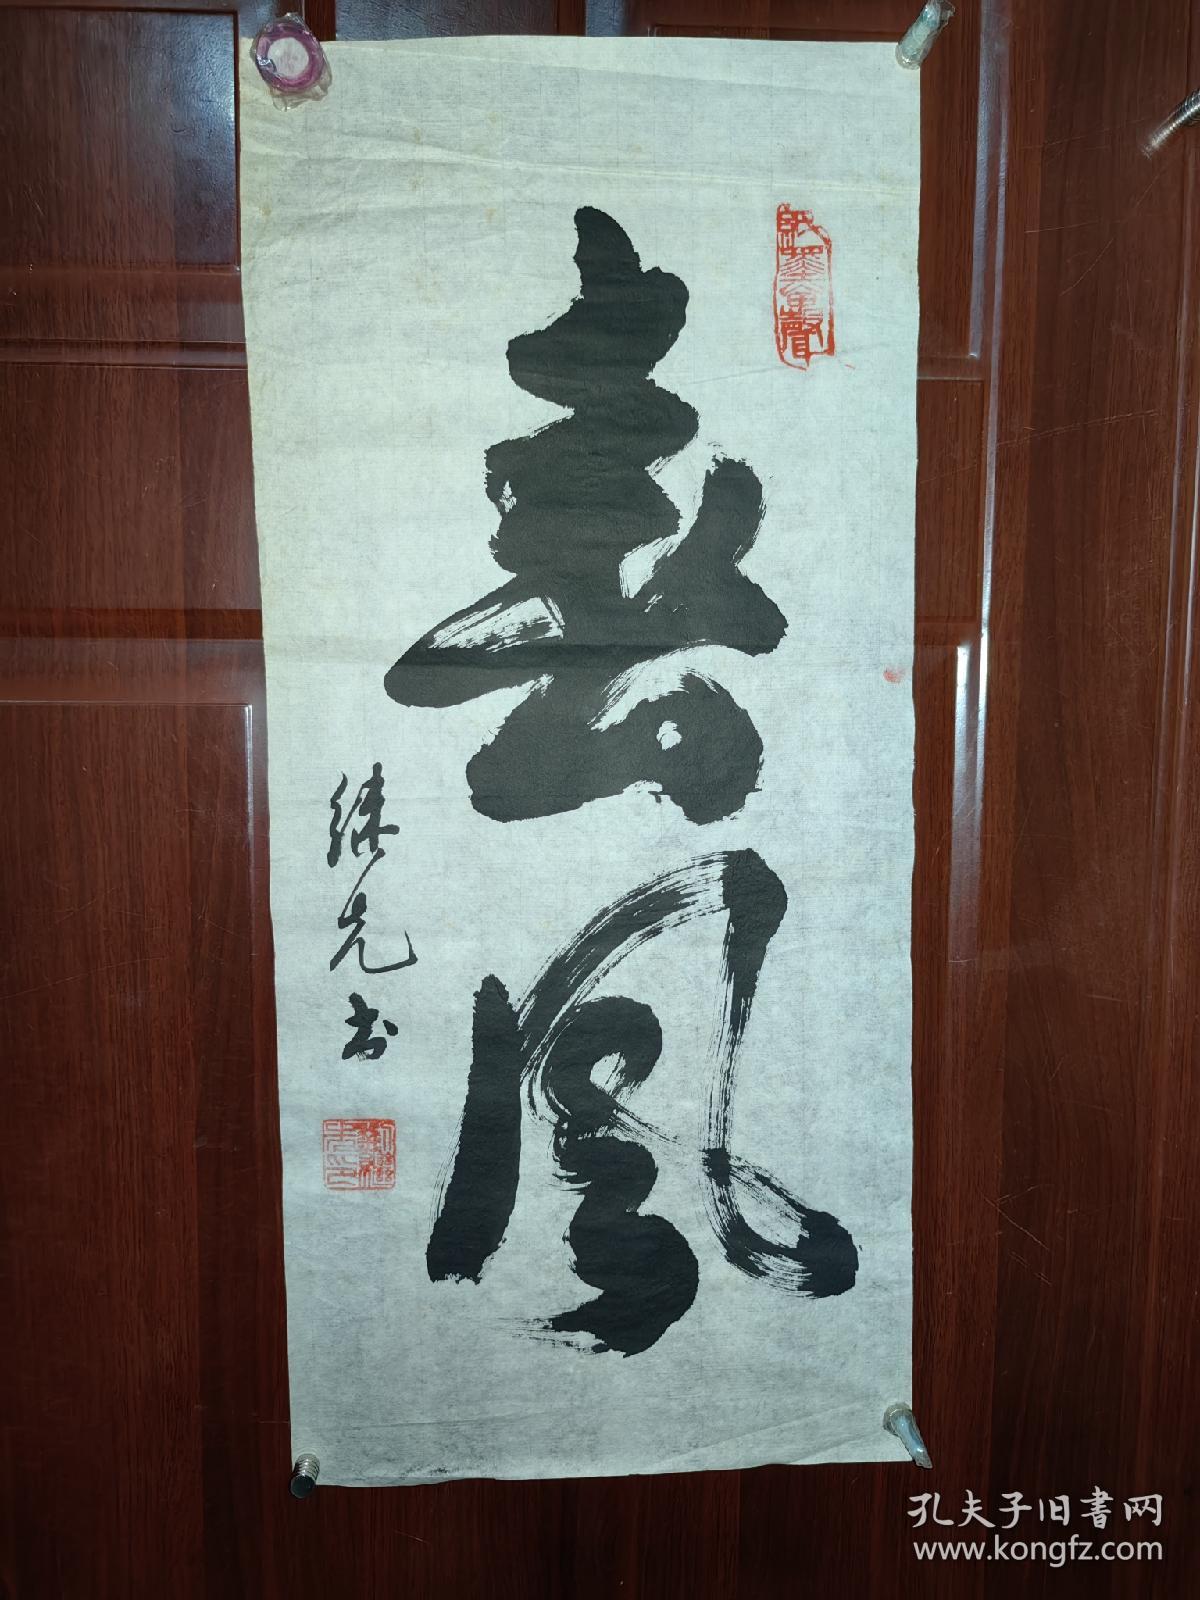 春风
继先书
孔夫子旧書网
www.kongfz.com